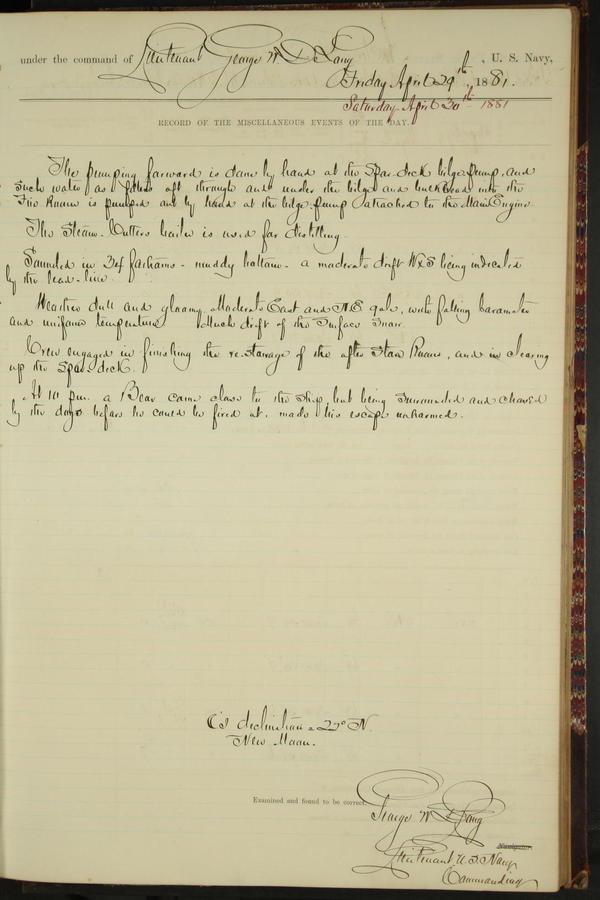 under the command of Lieutenant George W. De Long, U. S. Navy,
Friday April 29th, 1881.
Saturday April 30th 1881
RECORD OF THE MISCELLANEOUS EVENTS OF THE DAY.
The pumping forward is done by hand at the Spar-deck bilge-pump, and
such water as finds aft through and under the bilge and bulkhead into the
Fire Room is pumped out by hand at the bilge-pump attached to the Main Engine.
The Steam-Cutters boiler is used for distilling.
Sounded in 34 fathoms - muddy bottom - a moderate drift W & S being indicated
by the lead-line.
Weather dull and gloomy. Moderate East and N.E gale, with falling barometer
and uniform temperature. Much drift of the surface snow.
Crew engaged in finishing the re-stowage of the after Store Rooms, and in clearing
up the Spar-deck.
At 10 p.m. a Bear came close to the ship, but being surrounded and chased
by the dogs before he could be fired at, made his escape unharmed.
declination 22° N.
New Moon.
Examined and found to be correct.
George W. De Long
Navigator.
Lieutenant, U.S. Navy
Commanding